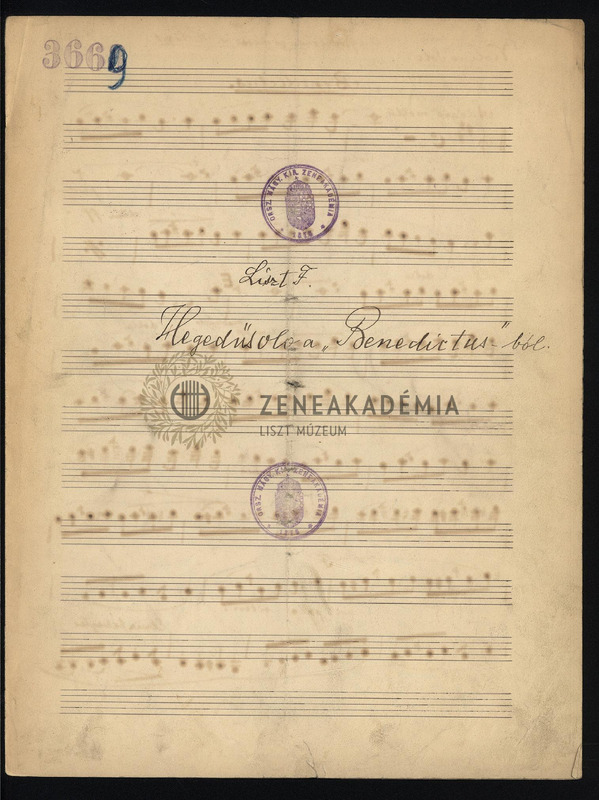 3669
ORSZ. MAGY. KIR. ZENEAKADÉMIA
Liszt F.
Hegedűsolo a „Benedictus"-ból.
ZENEAKADÉMIA
LISZT MÚZEUM
ORSZ. MAGY. KIR. ZENEAKADÉMIA